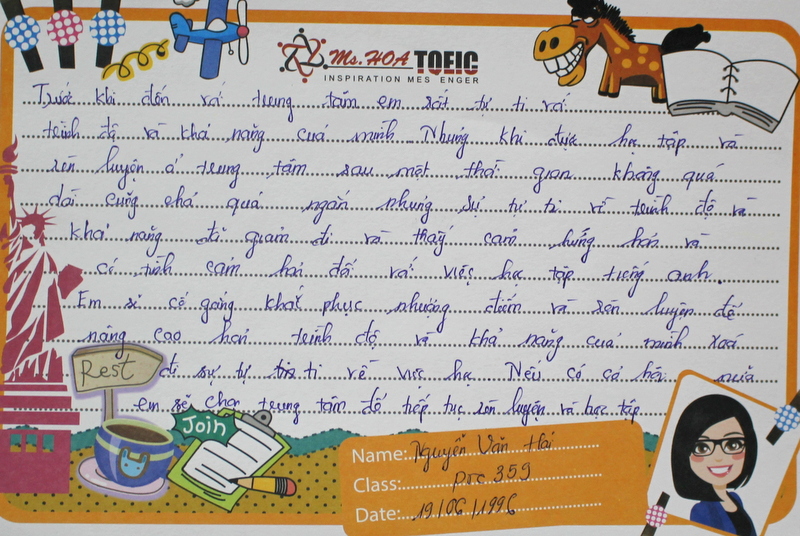 Ms.HOA TOEIC
INSPIRATION MESSENGER
Trước khi đến với trung tâm em rất tự ti với
trình độ và khả năng của mình. Nhưng khi được học tập và
rèn luyện ở trung tâm sau một thời gian không quá
dài cũng chả quá ngắn nhưng sự tự ti về trình độ và
khả năng đã giảm đi và thấy cảm hứng hơn và
có tình cảm hơn đối với việc học tập tiếng anh.
Em sẽ cố gắng khắc phục nhượng điểm và rèn luyện để
nâng cao hơn trình độ và khả năng của mình xoá
Rest đi sự tự ti về việc học. Nếu có cơ hội nữa
em sẽ chọn trung tâm để tiếp tục rèn luyện và học tập
Join
Name: Nguyễn Văn Hải
Class: Pre 359
Date: 19/06/1996